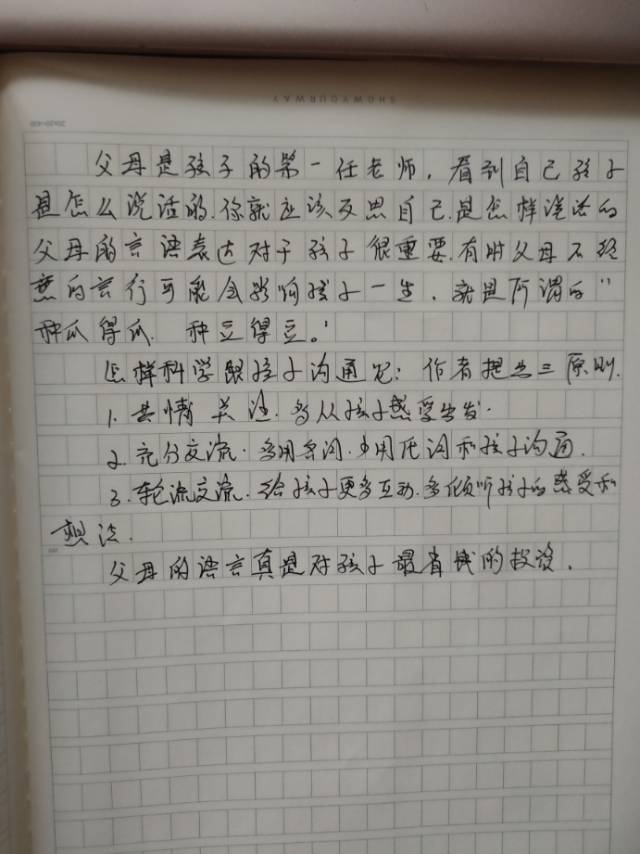 SHOWYOURWAY
父母是孩子的第一任老师，看到自己孩子
是怎么说话的，你就应该反思自己是怎样说话的
父母的言语表达对于孩子很重要，有时父母不经
意的言行可能会影响孩子一生，就是所谓的“
种瓜得瓜 种豆得豆。”
怎样科学跟孩子沟通呢：作者提出三原则.
1. 共情关注. 多从孩子感受出发.
2. 充分交流. 多用 词. 少用 词和孩子沟通.
3. 轮流交流. 给孩子更多互动. 多倾听孩子的感受和
想法.
父母的语言真是对孩子最省钱的投资.